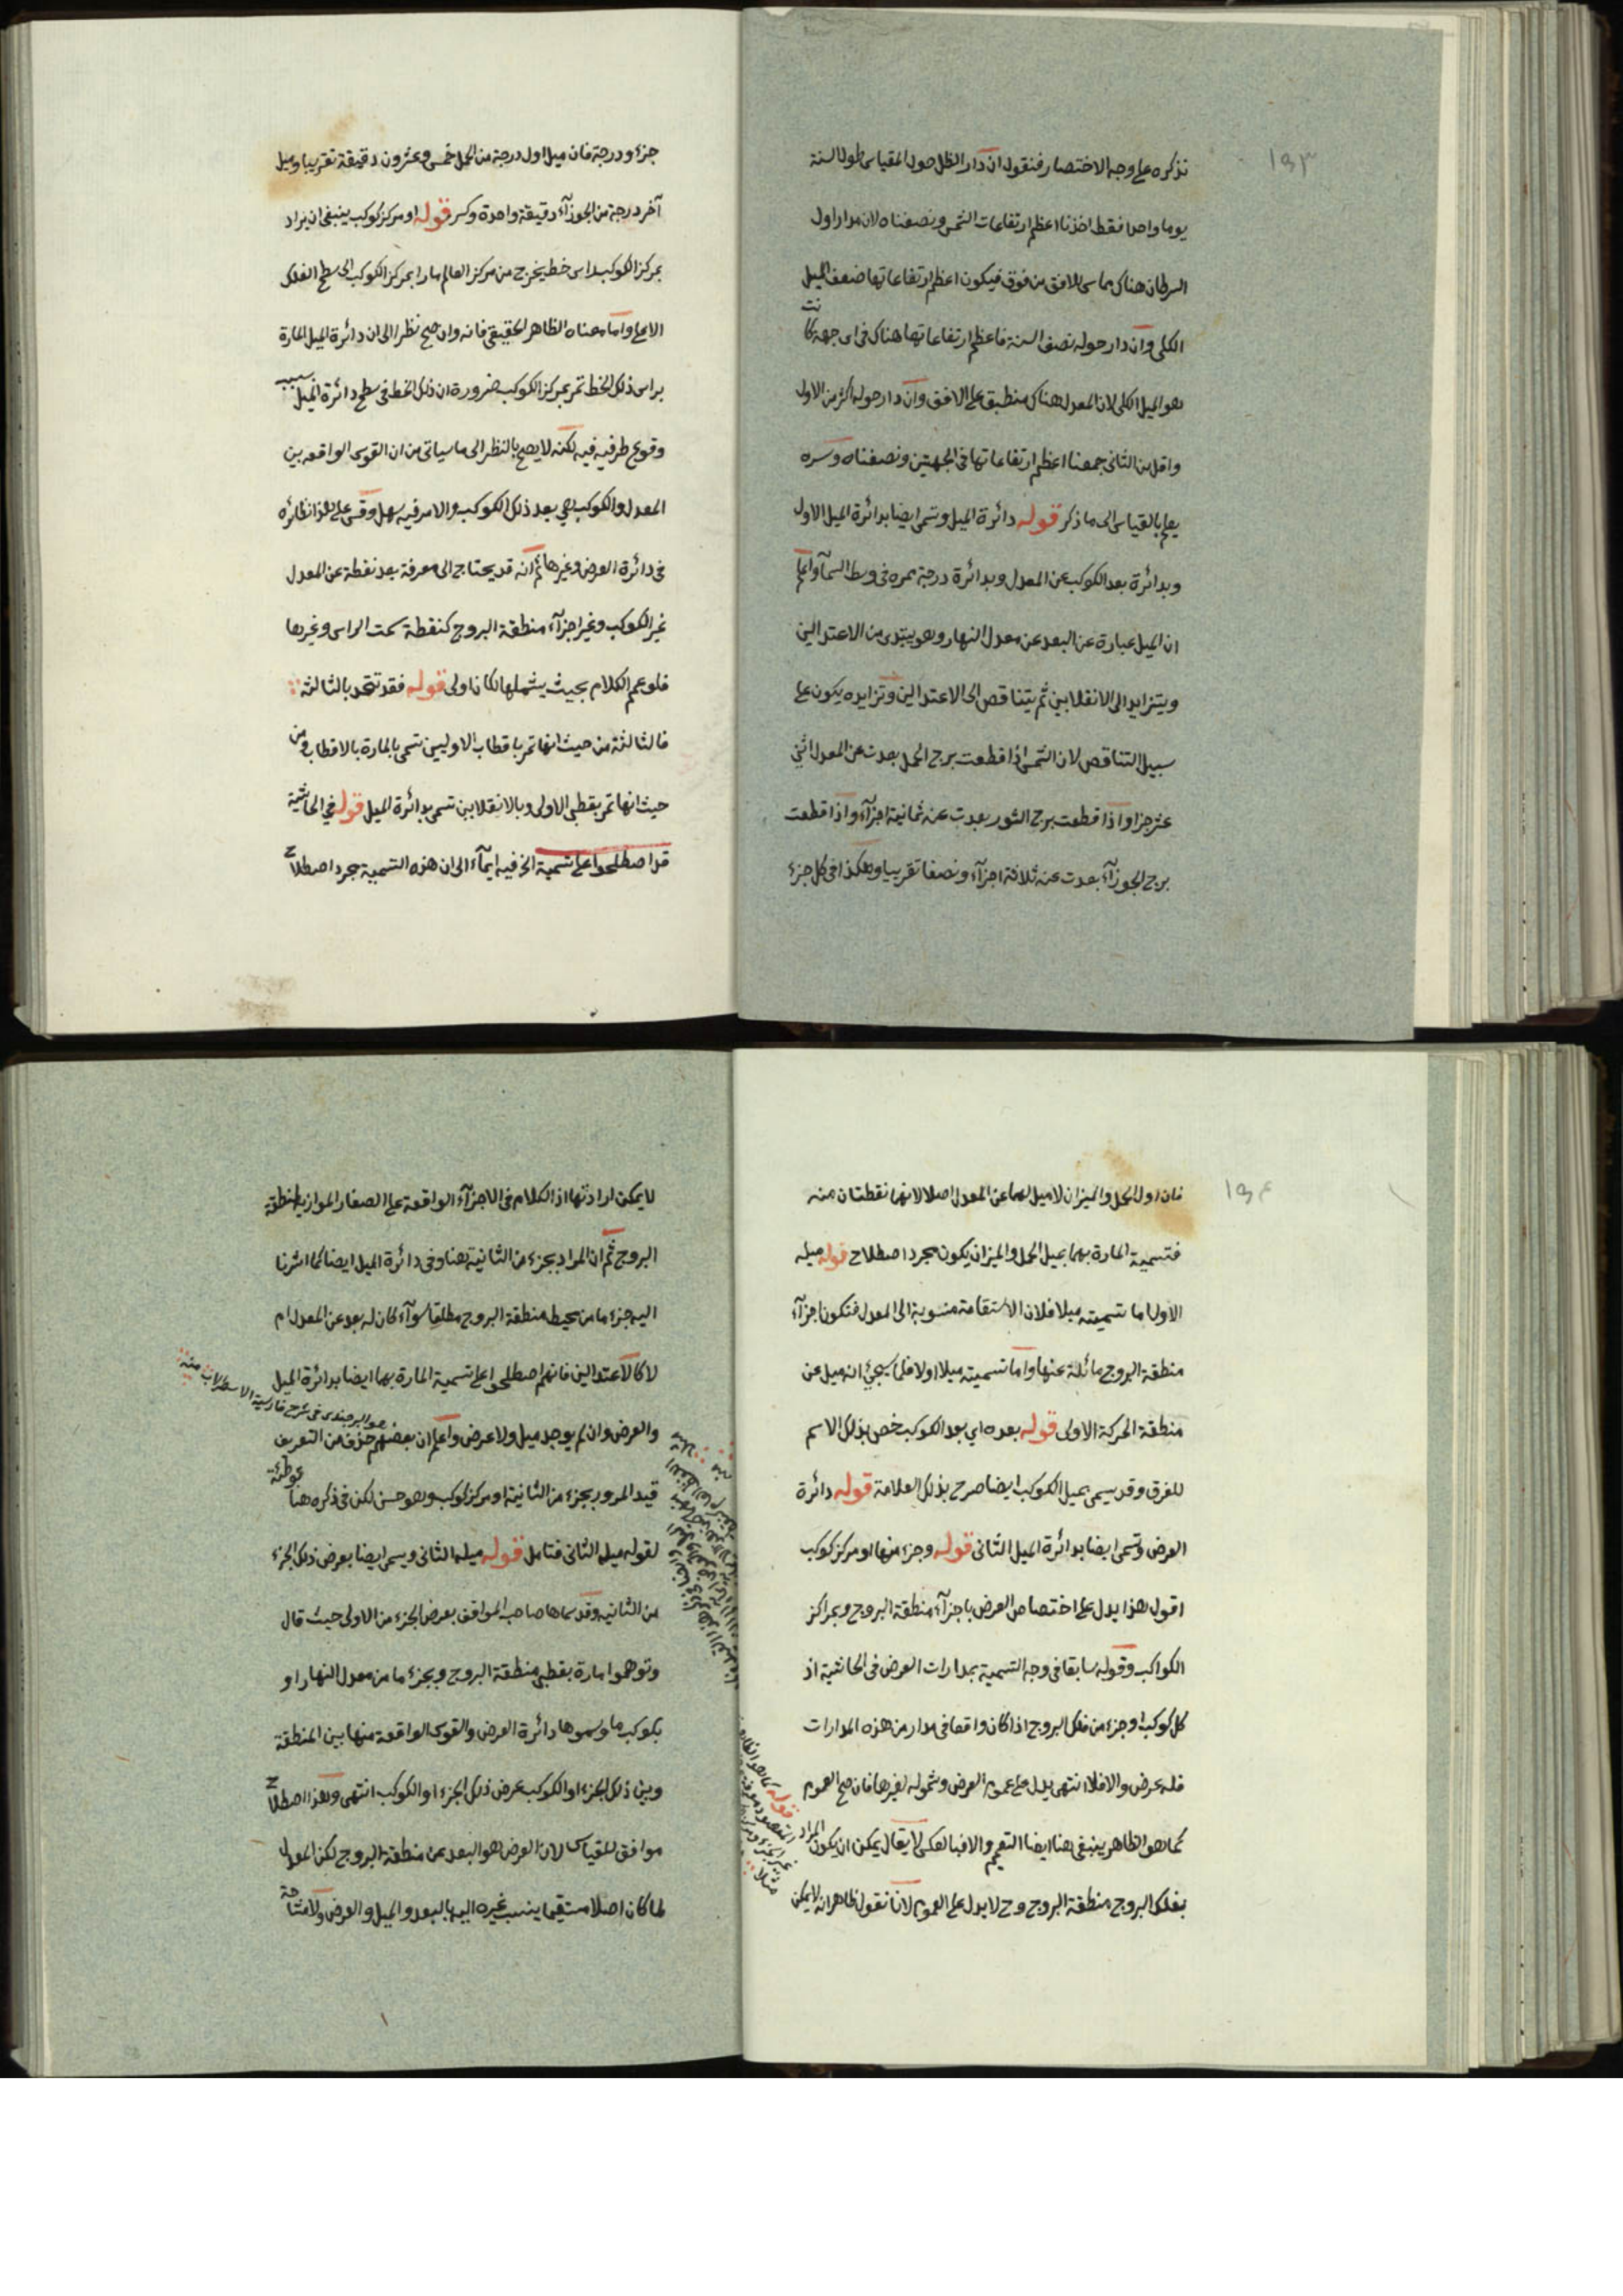 ١٥٣
نذكره على وجه الاختصار فنقول ان دار الظل حول المقياس طول السنة
يوما واحدا فقط اخذنا اعظم ارتفاعات الشمس ونصفناه لان مدار اول
السرطان هناك مماس للافق من فوق فيكون اعظم ارتفاعاتها ضعف الميل
الكلى وان دار حوله نصف السنة فاعظم ارتفاعاتها هناك فى اى جهة كانت
هو الميل الكلى لان المعدل هناك منطبق على الافق وان دار حوله اكثر من الاول
واقل من الثانى جمعنا اعظم ارتفاعاتها فى الجهتين ونصفناه وسره
يعلم بالقياس الى ما ذكر قوله دائرة الميل وتسمى ايضا بدائرة الميل الاول
وبدائرة بعد الكوكب عن المعدل وبدائرة درجة ممره فى وسط السمآ واعلم
ان الميل عبارة عن البعد عن معدل النهار وهو يبتدى من الاعتدالين
ويتزايد الى الانقلابين ثم يتناقص الى الاعتدالين وتزايده يكون على
سبيل التناقص لان الشمس اذا قطعت برج الحمل بعدت عن المعدل اثنى
عشر جزا واذا قطعت برج الثور بعدت عنه ثمانية اجزآء واذا قطعت
برج الجوزآء بعدت عنه ثلاثة اجزآء ونصفا تقريبا وهكذا فى كل جزء
جزء ودرجة فان ميل اول درجة من الحمل خمس وعشرون دقيقة تقريبا وميل
آخر درجة من الجوزآء دقيقة واحدة وكسر قوله او مركز كوكب ينبغى ان يراد
بمركز الكوكب راس خط يخرج من مركز العالم مارا بمركز الكوكب الى سطح الفلك
الاعلى واما معناه الظاهر الحقيقى فانه وان صح نظرا الى ان دائرة الميل المارة
براس ذلك الخط تمر بمركز الكوكب ضرورة ان ذلك الخط فى سطح دائرة الميل بسبب
وقوع طرفيه فيه لكنه لا يصح بالنظر الى ما سياتى من ان القوس الواقعه بين
المعدل والكوكب هي بعد ذلك الكوكب والامر فيه سهل وقس على هذا نظائره
فى دائرة العرض وغيرها ثم انه قد يحتاج الى معرفة بعد نقطة عن المعدل
غير الكوكب وغير اجزآء منطقة البروج كنقطة سمت الراس وغيرها
فلو عمم الكلام بحيث يشملها لكان اولى قوله فقد تتحد بالثالثة
فالثالثة من حيث انها تمر باقطاب الاوليين تسمى بالمارة بالاقطاب ومن
حيث انها تمر بقطبى الاولى وبالانقلابين تسمى بدائرة الميل قوله فى الحاشية
قد اصطلحوا على تسمية الخ فيه ايمآء الى ان هذه التسمية مجرد اصطلاح
١٥٤
فان اول الحمل والميزان لا ميل لهما عن المعدل اصلا لانهما نقطتان منه
فتسمية المارة بهما بميل الحمل والميزان يكون مجرد اصطلاح قوله ميله
الاول اما تسميته ميلا فلان الاستقامة منسوبة الى المعدل فتكون اجزآء
منطقة البروج مائلة عنها واما تسميته ميلا اولا فلما سيجئ انه ميل عن
منطقة الحركة الاولى قوله بعده اي بعد الكوكب خص بذلك الاسم
للفرق وقد يسمى بميل الكوكب ايضا صرح بذلك العلامة قوله دائرة
العرض وتسمى ايضا بدائرة الميل الثانى قوله وجزء منها او مركز كوكب
اقول هذا يدل على اختصاص العرض باجزآء منطقة البروج وبمراكز
الكواكب وقوله سابقا فى وجه التسمية بمدارات العرض فى الحاشية اذ
كل كوكب او جزء من فلك البروج اذا كان واقعا فى مدار من هذه المدارات
فله عرض والا فلا انتهى يدل على عموم العرض وشموله لغيرها فان صح العموم
كما هو الظاهر ينبغى هنا ايضا التعميم والا فبالعكس لا يقال يمكن ان يكون المراد
بفلك البروج منطقة البروج وح لا يدل على العموم لانا نقول ظاهر انه لا يمكن
قوله كما هو الظاهر
لا يمكن ارادتها اذ الكلام فى الاجزآء الواقعة على الصغار الموازية لمنطقة
البروج ثم ان المراد بجزء من الثانية هنا وفى دائرة الميل ايضا كما اشرنا
اليه جزء ما من محيط منطقة البروج مطلقا سوآء كان له بعد عن المعدل ام
لا كالاعتدالين فانهم اصطلحوا على تسمية المارة بهما ايضا بدائرة الميل
والعرض وان لم يوجد ميل ولا عرض واعلم ان بعضهم حذف من التعريف
هو البرجندى فى شرح فارسية الاسطرلاب منه
قيد المرور بجزء من الثانية او مركز كوكب وهو حسن لكن فى ذكره هنا توطئة
لقوله ميله الثانى فتامل قوله ميله الثانى ويسمى ايضا بعرض ذلك الجزء
من الثانيه وقد سماها صاحب المواقف بعرض الجزء من الاولى حيث قال
وتوهموا مارة بقطبى منطقة البروج وبجزء ما من معدل النهار او
بكوكب ما وسموها دائرة العرض والقوس الواقعة منها بين المنطقة
وبين ذلك الجزء او الكوكب عرض ذلك الجزء او الكوكب انتهى وهذا اصطلاح
موافق للقياس لان العرض هو البعد عن منطقة البروج لكن المعدل
لما كان اصلا مستقيما ينسب غيره اليها بالبعد والميل والعرض ولا مشاحة